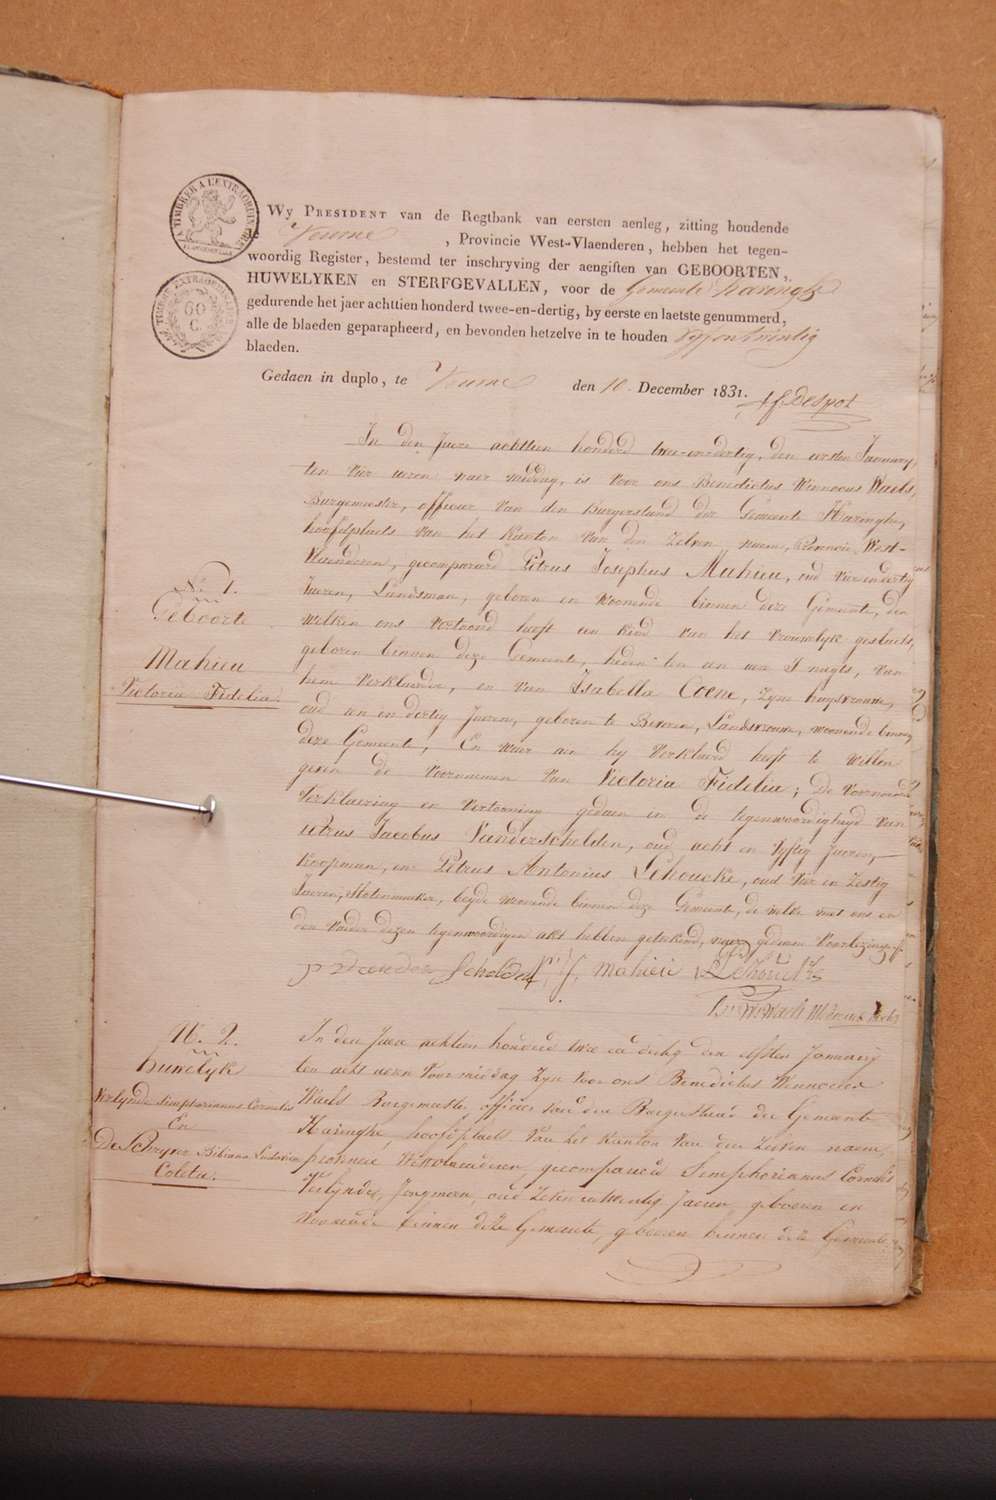 A TIMBRER A L'EXTRAORDINAIRE
TIMBRE EXTRAORDINAIRE
60
C.
Wy PRESIDENT van de Regtbank van eersten aenleg, zitting houdende
Veurne , Provincie West-Vlaenderen, hebben het tegen-
woordig Register, bestemd ter inschryving der aengiften van GEBOORTEN,
HUWELYKEN en STERFGEVALLEN, voor de Gemeente Haringhe
gedurende het jaer achttien honderd twee-en-dertig, by eerste en laetste genummerd,
alle de blaeden geparapheerd, en bevonden hetzelve in te houden
blaeden.
Gedaen in duplo, te Veurne den 10 December 1831.
In den Jaere achttien honderd twee-en-dertig, den eersten January,
ten vier uren naer middag, is voor ons Benedictus Winnocus Waels,
Burgemeester, officier van den Burgerstand der Gemeente Haringhe,
hoofdplaets van het Kanton van den Zelven naeme, Provincie West-
Vlaenderen, gecompareerd Petrus Josephus Mahieu, oud vier en dertig
Jaeren, Landsman, geboren en woonende binnen deze Gemeente, den
welken ons vertoond heeft een kind van het vrouwelyk geslacht,
geboren binnen deze Gemeente, heden ten een ure S'nagts, van
hem Verklaerder, en van Isabella Coene, Zyne huysvrouwe,
oud een en dertig Jaeren, geboren te Beveren, Landsvrouwe, woonende binnen
deze Gemeente, En waer aen hy verklaerd heeft te willen
geven de voornaemen van Victoria Fidelia; De voornoemde
Verklaering en vertooning gedaen in de tegenwoordigheyd van
Petrus Jacobus Vanderschelden, oud acht en vyftig Jaeren,
Koopman, en Petrus Antonius Lehoucke, oud vier en zestig
Jaeren, beyde woonende binnen deze Gemeente, de welke met ons en
den Vader dezen tegenwoordigen akt hebben geteekend, naer gedaene voorlezinge.
No 1.
Geboorte
Mahieu
Victoria Fidelia.
P J Vander Schelden P. J. Mahieu
N. 2.
Huwelyk
Verlynde Simphorianus Cornelis
En
De Schryver Bibiana Ludovica
Coleta.
In den Jaere achtien honderd twee en dertig den elfsten January
ten acht uren voor middag Zyn voor ons Benedictus Winnocus
Waels Burgemeester, officier van den Burgerstand der Gemeente
Haringhe, hoofdplaets van het Kanton van den Zelven naeme,
provincie Westvlaenderen, gecompareerd Simphorianus Cornelis
Verlynde, Jongman, oud Zeven en twintig Jaeren, geboren en
Woonende binnen deze Gemeente, geboren binnen deze Gemeente